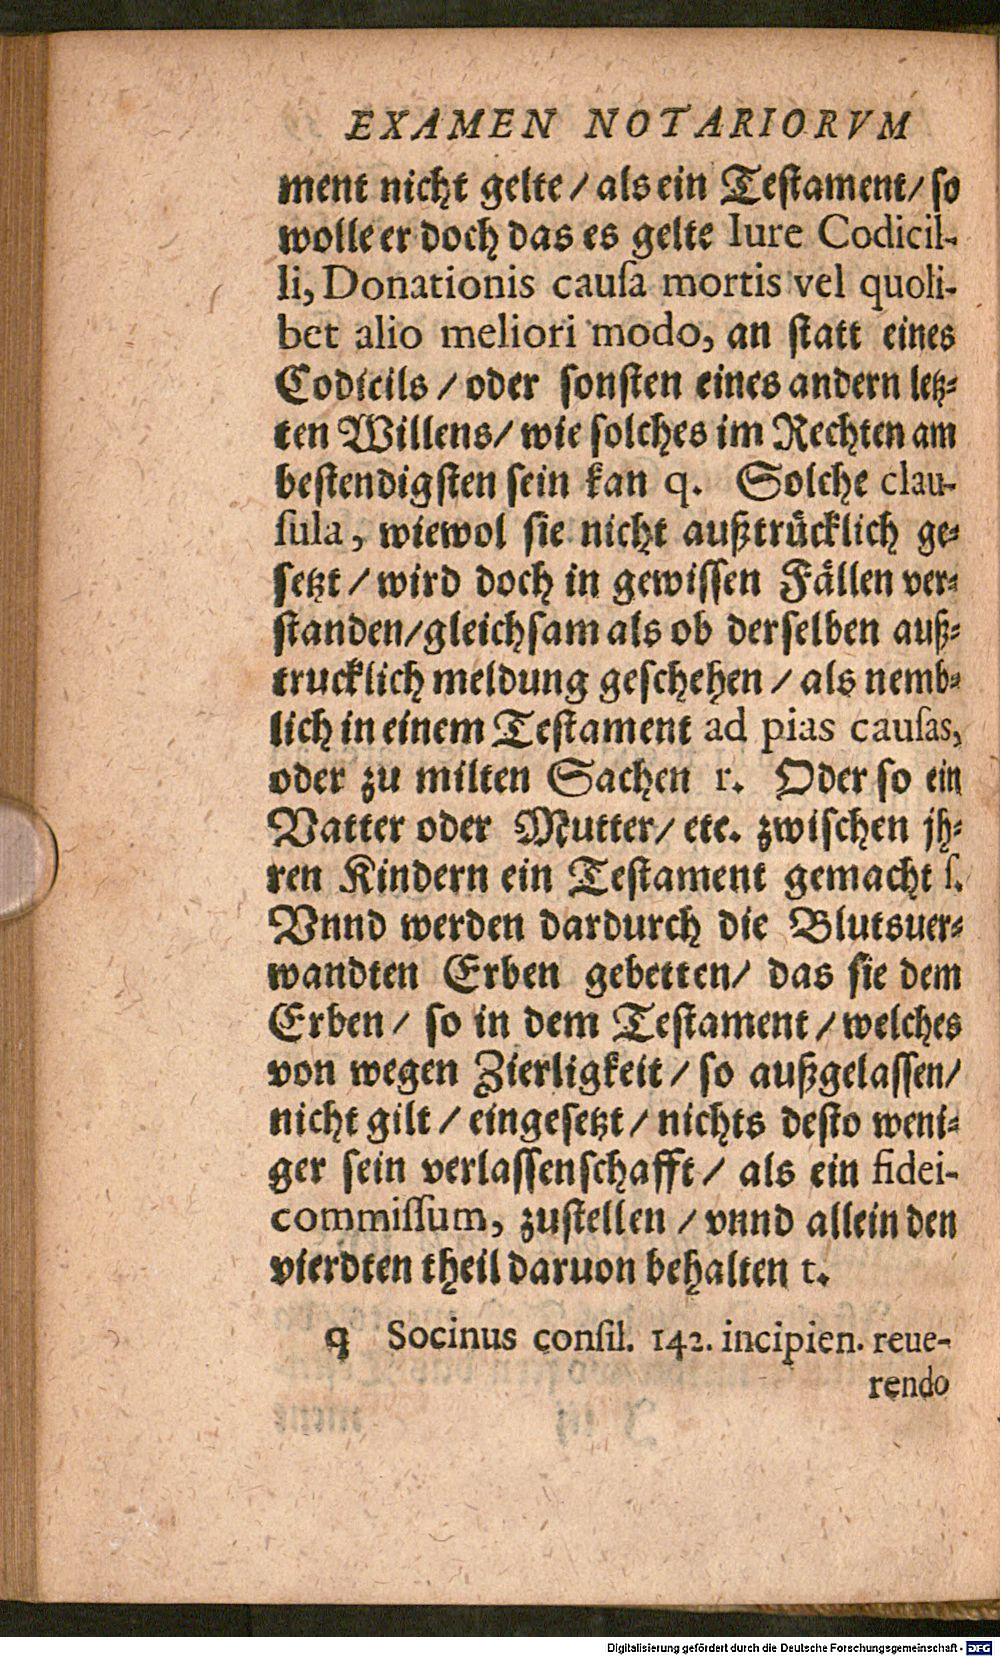 EXAMEN NOTARIORVM
ment nicht gelte / als ein Testament / so
wolle er doch das es gelte Iure Codicil-
li, Donationis cauſa mortis vel quoli-
bet alio meliori modo, an statt eines
Codicils / oder sonsten eines andern letz-
ten Willens / wie solches im Rechten am
bestendigsten sein kan q. Solche clau-
ſula, wiewol sie nicht außtrücklich ge-
setzt / wird doch in gewissen Fällen ver-
standen / gleichsam als ob derselben auß-
trucklich meldung geschehen / als nemb-
lich in einem Testament ad pias cauſas,
oder zu milten Sachen r. Oder so ein
Vatter oder Mutter / etc. zwischen jh-
ren Kindern ein Testament gemacht ſ.
Vnnd werden dardurch die Blutsuer-
wandten Erben gebetten / das sie dem
Erben / so in dem Testament / welches
von wegen Zierligkeit / so außgelassen /
nicht gilt / eingesetzt / nichts desto weni-
ger sein verlassenschafft / als ein fidei-
commiſſum, zustellen / vnnd allein den
vierdten theil daruon behalten t.
q Socinus conſil. 142. incipien. reue-
rendo
Digitalisierung gefördert durch die Deutsche Forschungsgemeinschaft - DFG